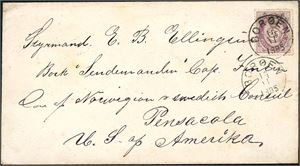 Styrmand E. B. Ellingsen
Bark "Sendemanden" Cap.
Care of Norwegian & Swedish Consul
Pensacola
U. S. of Amerika
BORØEN
BORØEN